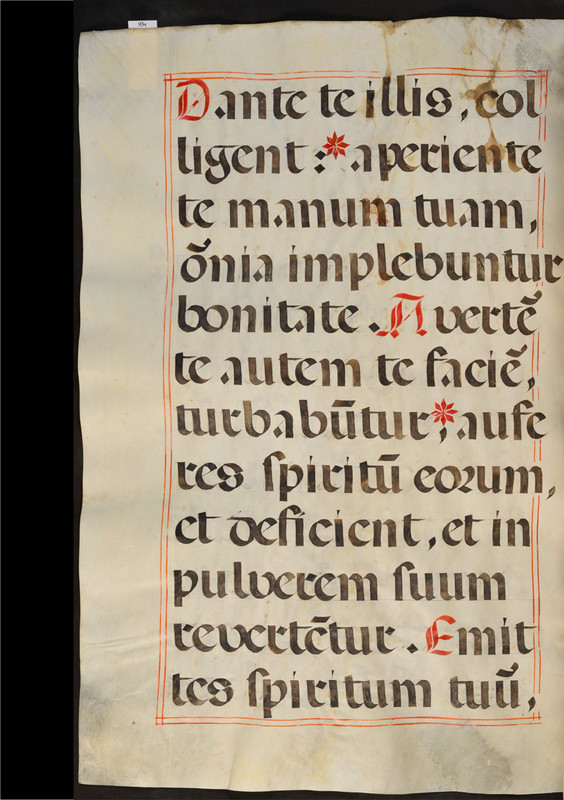 93v
Dante te illis, col
ligent :* aperiente
te manum tuam,
õnia implebuntur
bonitate. Avertẽ
te autem te faciẽ,
turbabũtur;* aufe
res spiritũ eorum,
et deficient, et in
pulverem suum
revertẽtur. Emit
tes spiritum tuũ,